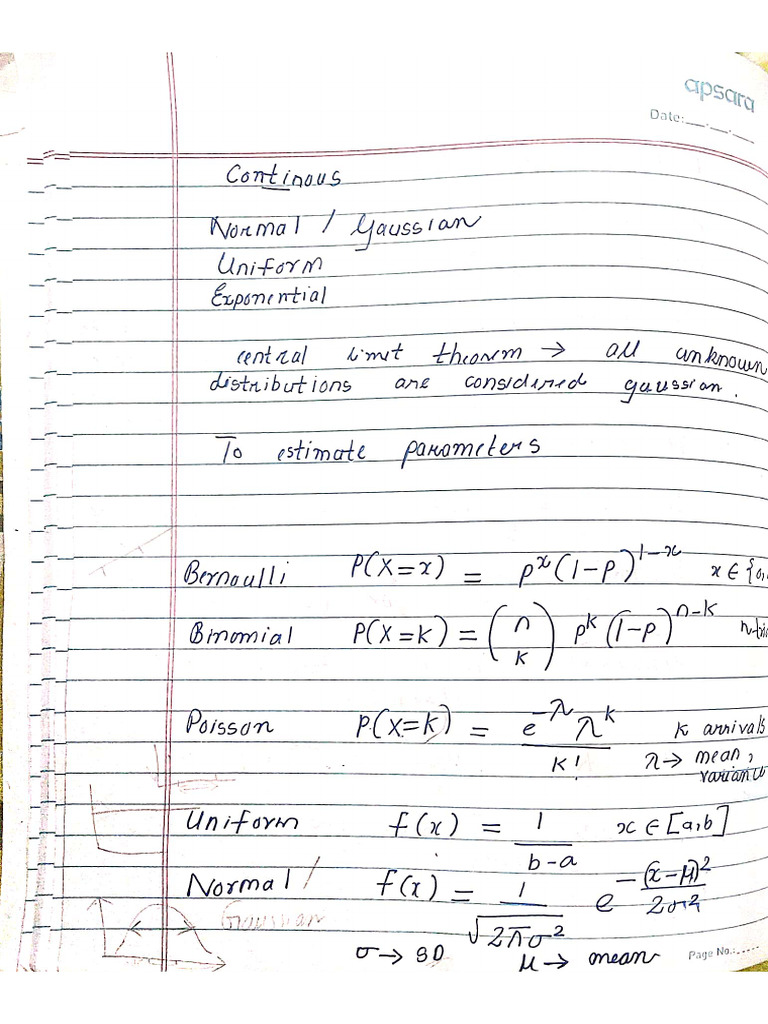 apsara
Date:__.__.__
Continous
Normal / Gaussian
Uniform
Exponential
central limit theorem → all unknown
distributions are considered gaussian.
To estimate parameters
Bernoulli P(X=x) = p^x (1-P)^{1-x} x ∈ {0,
Binomial P(X=k) = (n k) p^k (1-P)^{n-k}
Poisson P(X=k) = e^{-λ} λ^k / k! k arrivals
λ→ mean,
variance
Uniform f(x) = 1 / b-a x ∈ [a,b]
Normal / f(x) = 1 / √2πσ² e^{-(x-μ)²/2σ²}
Gaussian
σ→ SD μ→ mean
Page No.:.....